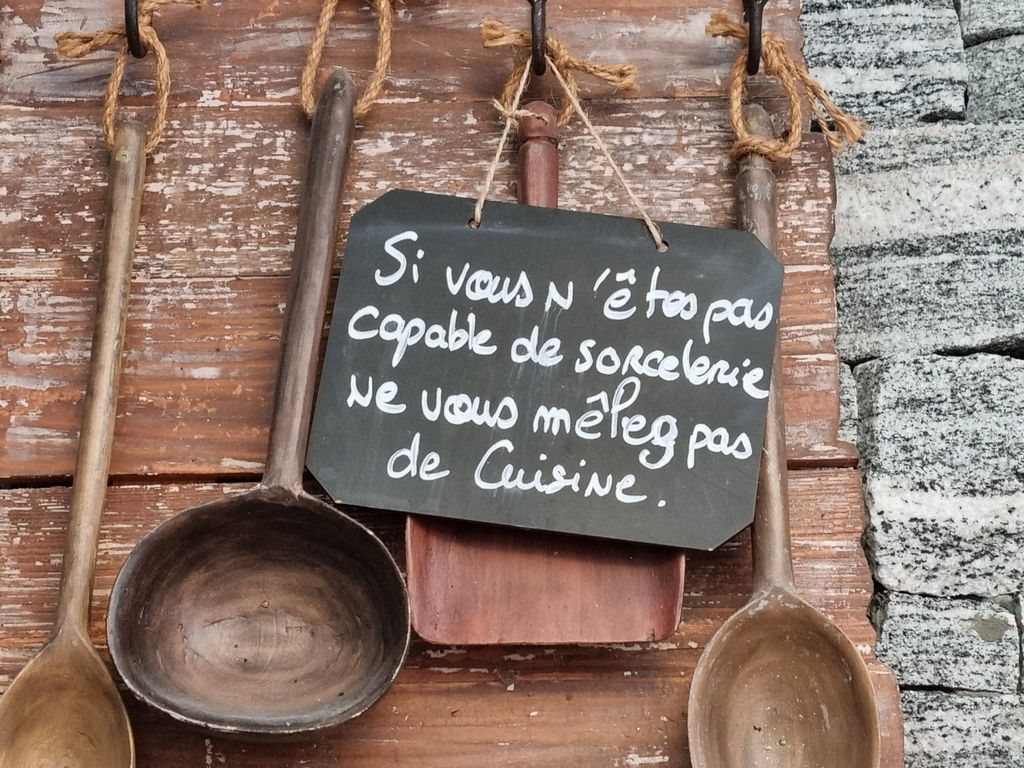 Si vous n'êtes pas
capable de sorcelerie
ne vous mêlez pas
de Cuisine.